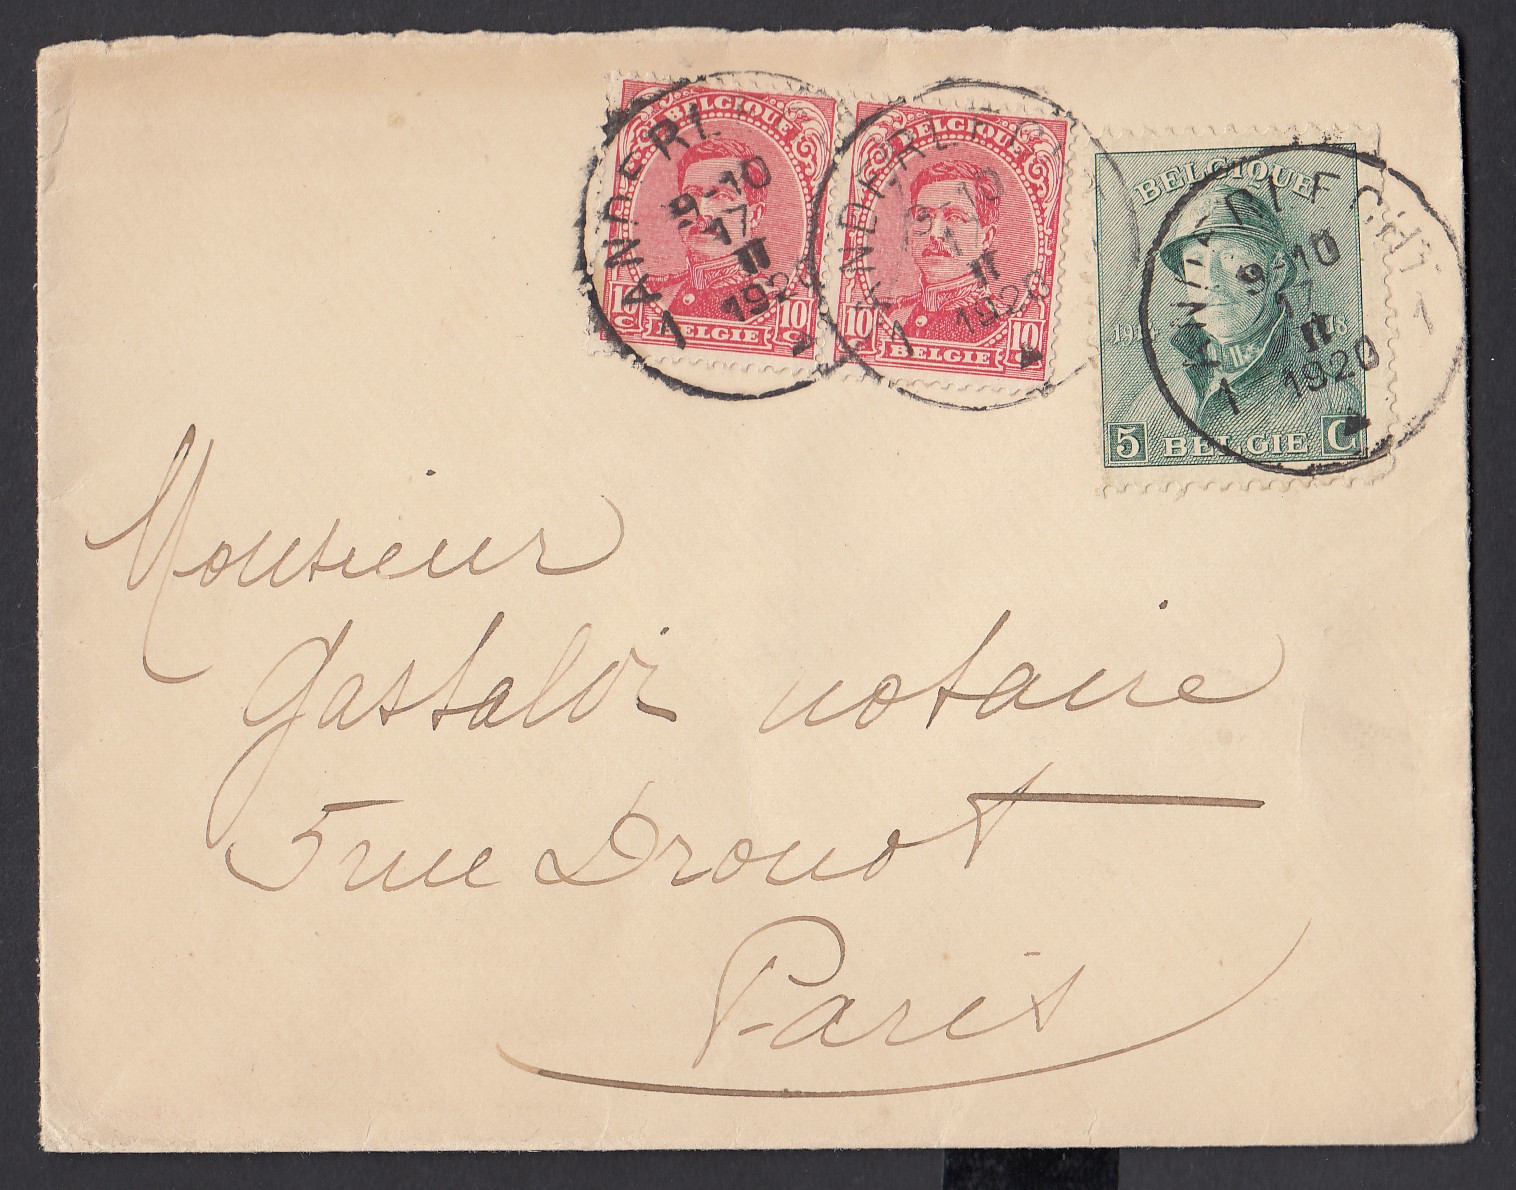 BELGIQUE
10 C BELGIE 10 C
ANDERL
1
9-10
17
II
1920
BELGIQUE
10 BELGIE 10 C
ANDERLEC
1
9-10
1
II
1920
BELGIQUE
5 BELGIE C
18
1
9-10
17
II
1920
1
Monsieur
Gastaldi notaire
5 rue Drouot
Paris